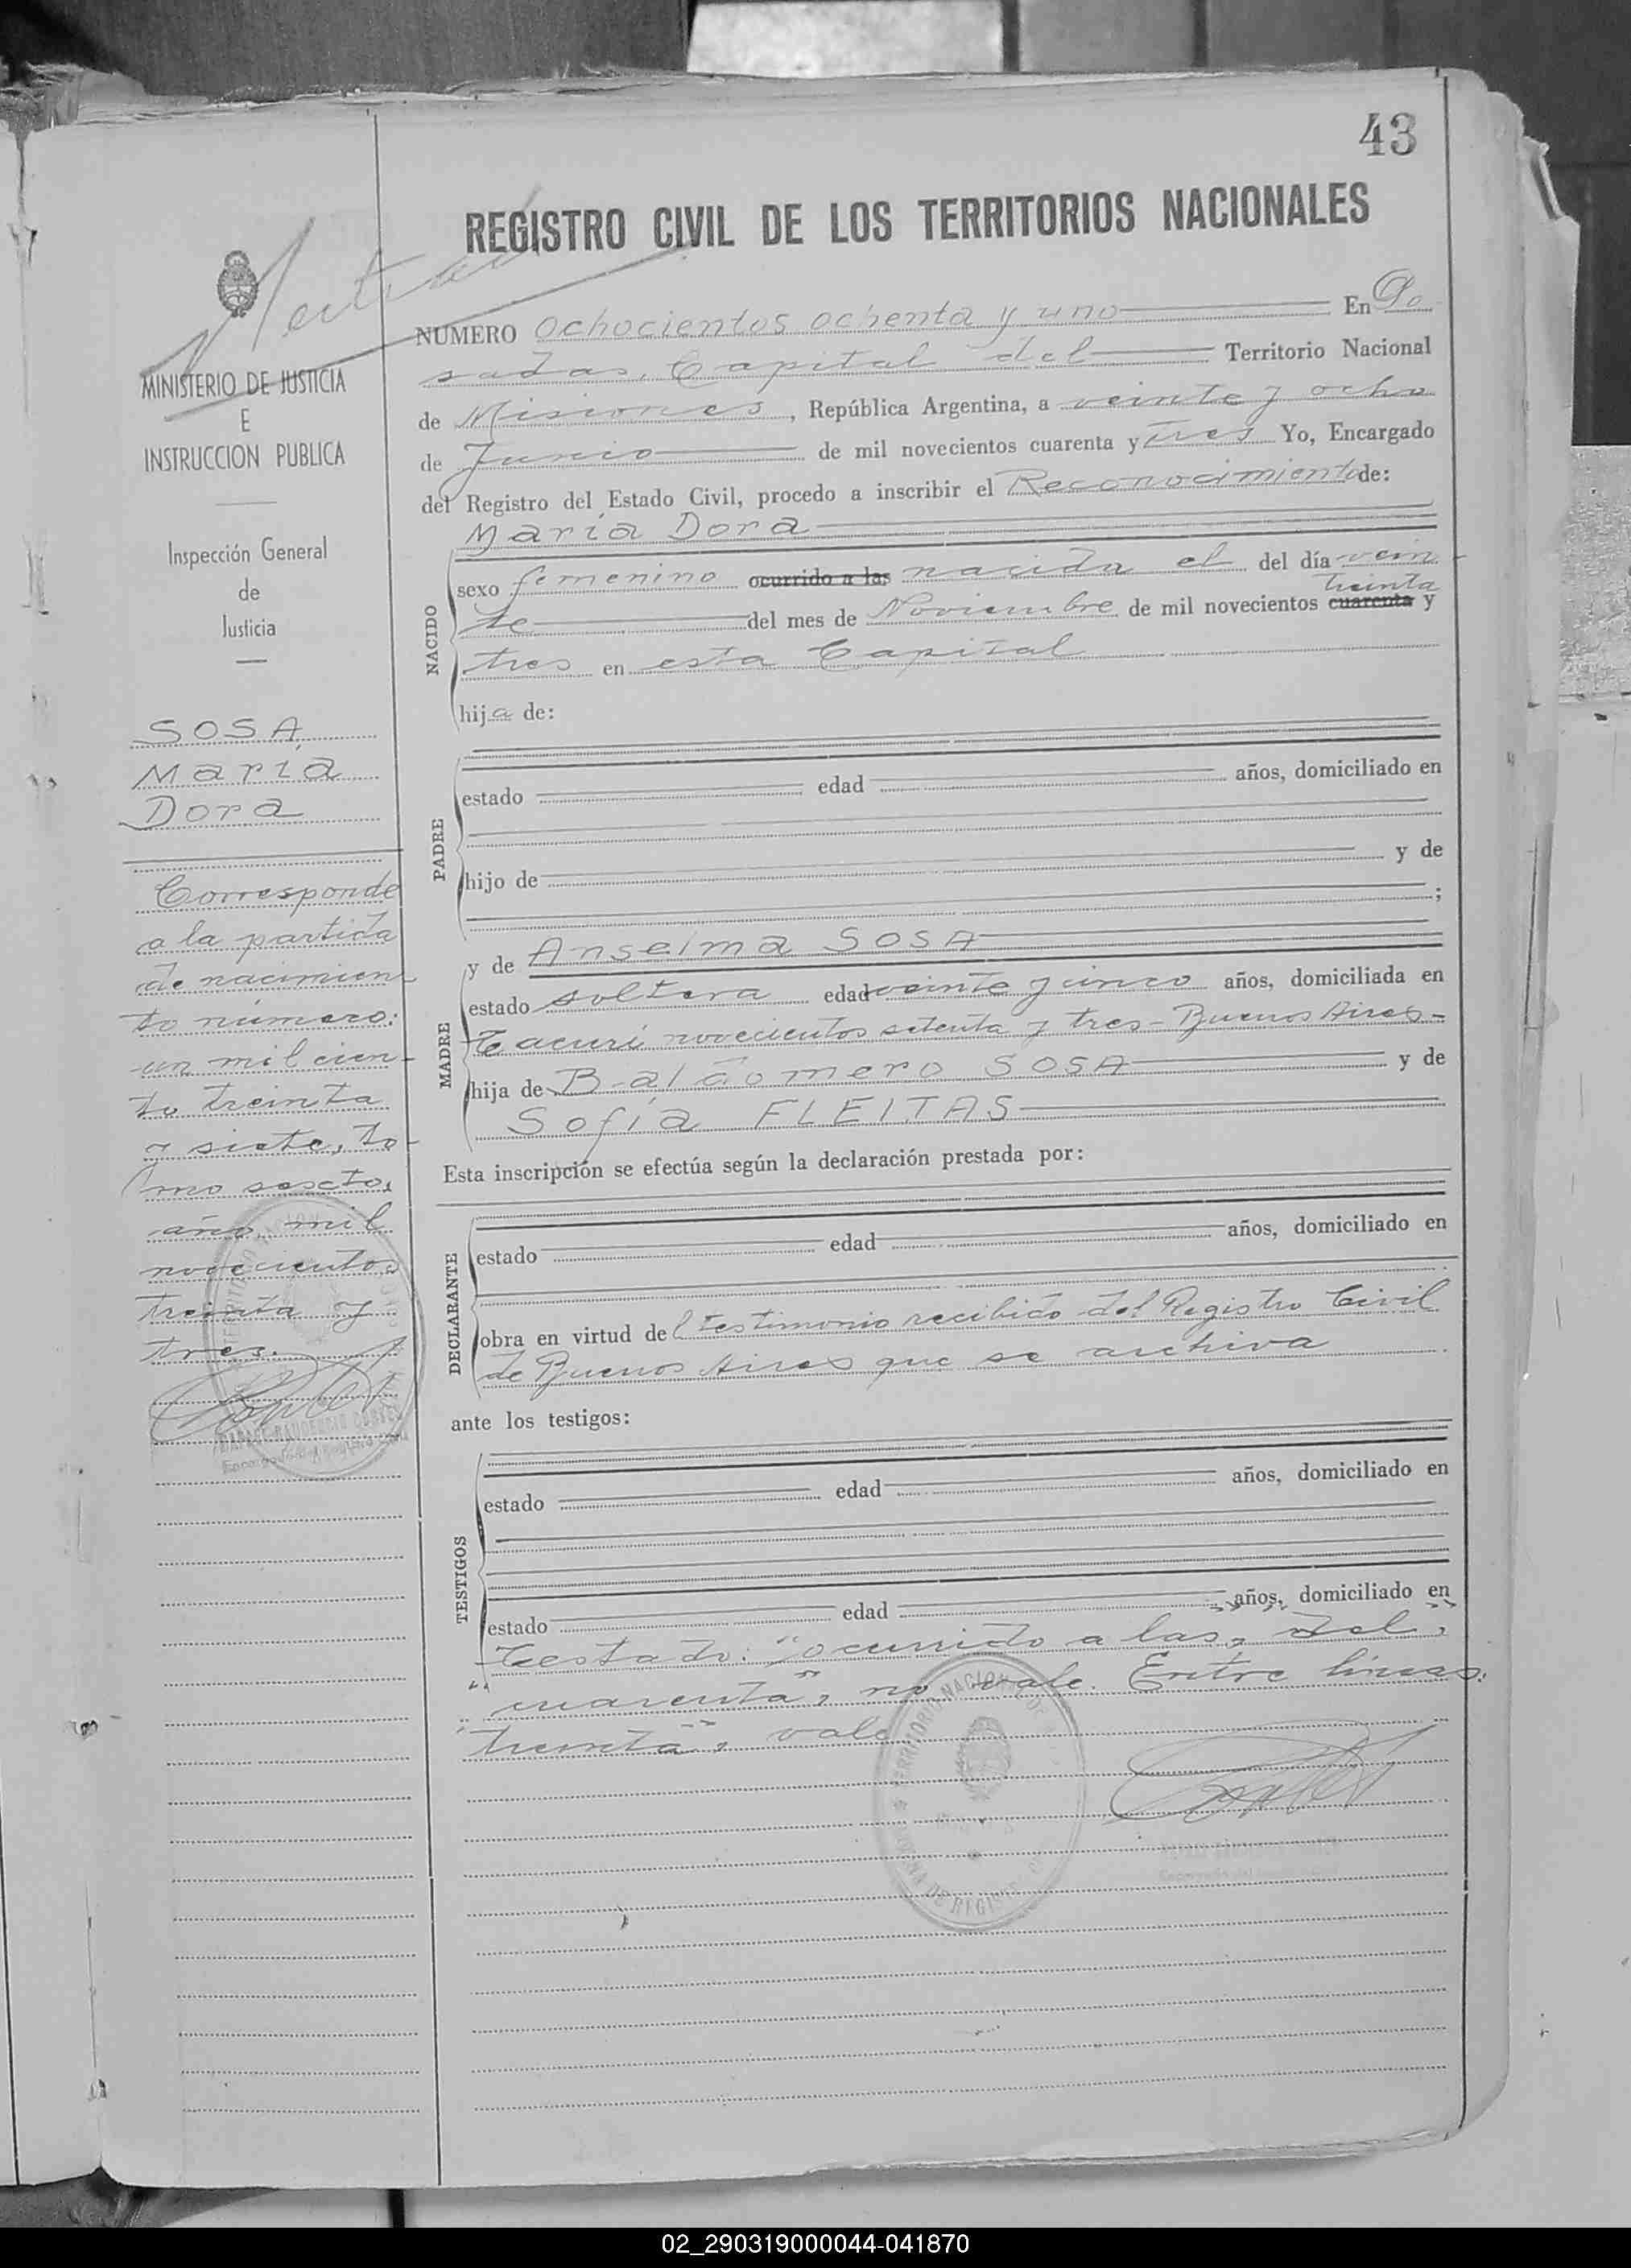 43
REGISTRO CIVIL DE LOS TERRITORIOS NACIONALES
NUMERO ochocientos ochenta y uno En Po
sadas, Capital del Territorio Nacional
de Misiones, República Argentina, a veinte y ocho
de Junio de mil novecientos cuarenta y tres Yo, Encargado
del Registro del Estado Civil, procedo a inscribir el Reconocimiento de:
María Dora
NACIDO
sexo femenino ocurrido a las nacida el del día vein
treinta
te del mes de Noviembre de mil novecientos cuarenta y
tres en esta Capital
hija de:
PADRE
estado edad años, domiciliado en
hijo de y de
;
MADRE
y de Anselma SOSA
estado soltera edad veinte y cinco años, domiciliada en
Tacuri novecientos setenta y tres - Buenos Aires -
hija de Baldomero SOSA y de
Sofía FLEITAS
Esta inscripción se efectúa según la declaración prestada por:
DECLARANTE
estado edad años, domiciliado en
obra en virtud del testimonio recibido del Registro Civil
de Buenos Aires que se archiva
ante los testigos:
TESTIGOS
estado edad años, domiciliado en
estado edad años, domiciliado en
Testado: "ocurrido a las", "del",
"cuarenta", no vale. Entre líneas:
"treinta", vale
MINISTERIO DE JUSTICIA
E
INSTRUCCION PUBLICA
Inspección General
de
Justicia
SOSA
María
Dora
Corresponde
a la partida
de nacimien
to número:
un mil cien
to treinta
y siete, to
mo sexto,
año mil
novecientos
treinta y
tres.
02_290319000044-041870